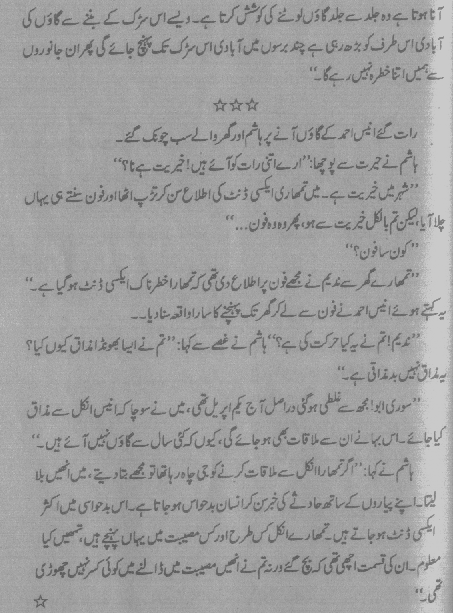 آنا ہوتا ہے وہ جلد سے جلد گاؤں لوٹنے کی کوشش کرتا ہے۔ ویسے اس سڑک کے بننے سے گاؤں کی
آبادی اس طرف کو بڑھ رہی ہے چند برسوں میں آبادی اس سڑک تک پہنچ جائے گی پھر ان جانوروں
سے ہمیں اتنا خطرہ نہیں رہے گا۔“
☆☆☆
رات گئے انیس احمد کے گاؤں آنے پر ہاشم اور گھر والے سب چونک گئے۔
ہاشم نے حیرت سے پوچھا: ”ارے اتنی رات کو آئے ہیں! خیریت ہے نا؟“
”شہر میں خیریت ہے۔ میں تمھاری ایکسی ڈنٹ کی اطلاع سن کر تڑپ اٹھا اور فون سنتے ہی یہاں
چلا آیا، لیکن تم بالکل خیریت سے ہو، پھر وہ وہ فون...“
”کون سا فون؟“
”تمھارے گھر سے ندیم نے مجھے فون پر اطلاع دی تھی کہ تمھارا خطرناک ایکسی ڈنٹ ہو گیا ہے۔“
یہ کہتے ہوئے انیس احمد نے فون سے لے کر گھر تک پہنچنے کا سارا واقعہ سنا دیا۔۔
”ندیم! تم نے یہ کیا حرکت کی ہے؟“ ہاشم نے غصے سے کہا: ”تم نے ایسا بھونڈا مذاق کیوں کیا؟
یہ مذاق نہیں بدمذاقی ہے۔“
”سوری ابو! مجھ سے غلطی ہو گئی دراصل آج یکم اپریل تھی، میں نے سوچا کہ انیس انکل سے مذاق
کیا جائے۔ اس بہانے ان سے ملاقات بھی ہو جائے گی، کیوں کہ کئی سال سے گاؤں نہیں آئے ہیں۔“
ہاشم نے کہا: ”اگر تمھارا انکل سے ملاقات کرنے کو جی چاہ رہا تھا تو مجھے بتا دیتے، میں انھیں بلا
لیتا۔ اپنے پیاروں کے ساتھ حادثے کی خبر سن کر انسان بدحواس ہو جاتا ہے۔ اس بدحواسی میں اکثر
ایکسی ڈنٹ ہو جاتے ہیں۔ تمھارے انکل کس طرح اور کس مصیبت میں یہاں پہنچے ہیں، تمھیں کیا
معلوم۔ ان کی قسمت اچھی تھی کہ بچ گئے ورنہ تم نے انھیں مصیبت میں ڈالنے میں کوئی کسر نہیں چھوڑی
تھی۔“ ☆